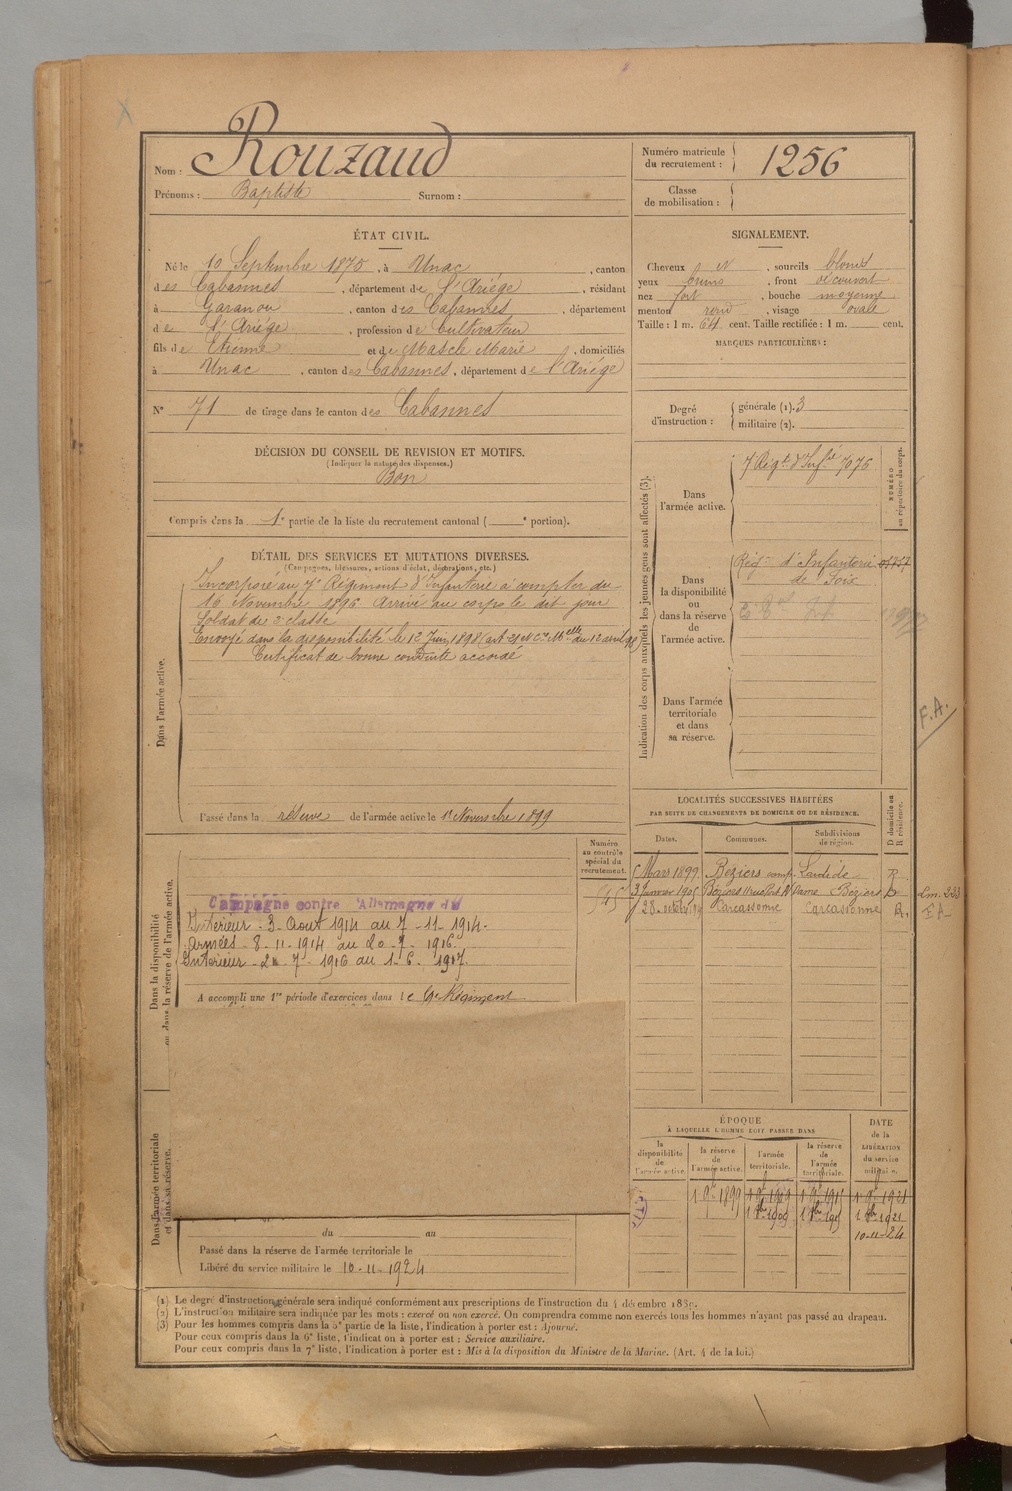 Nom : Rouzaud
Prénoms : Baptiste Surnom :
Numéro matricule du recrutement : 1256
Classe de mobilisation :
ÉTAT CIVIL.
Né le 10 Septembre 1875, à Unac, canton
des Cabannes, département de l'Ariège, résidant
à Garanou, canton des Cabannes, département
de l'Ariège, profession de Cultivateur
fils de Etienne et de Mascle Marie, domiciliés
à Unac, canton des Cabannes, département de l'Ariége
N° 71 de tirage dans le canton des Cabannes
SIGNALEMENT.
Cheveux N, sourcils blonds
yeux bruns, front découvert
nez fort, bouche moyenne
menton rond, visage ovale
Taille : 1 m. 64 cent. Taille rectifiée : 1 m. cent.
MARQUES PARTICULIÈRES :
Degré d'instruction : générale (1). 3
militaire (2).
DÉCISION DU CONSEIL DE REVISION ET MOTIFS.
(Indiquer la nature des dispenses.)
Bon
Compris dans la 1e partie de la liste du recrutement cantonal ( e portion).
DÉTAIL DES SERVICES ET MUTATIONS DIVERSES.
(Campagnes, blessures, actions d'éclat, décorations, etc.)
Dans l'armée active.
Incorporé au 7e Régiment d'Infanterie à compter du
16 Novembre 1896 Arrivé au corps le dit jour
Soldat de 2e classe
Envoyé dans la disponibilité le 12 Juin 1898 (art 21 N Cre Melle du 12 avril 98)
Certificat de bonne conduite accordé
Passé dans la réserve de l'armée active le 1 Novembre 1899
Indication des corps auxquels les jeunes gens sont affectés (3).
NUMÉRO au répertoire du corps.
Dans l'armée active.
7 Régt d'Infie 7075
Dans la disponibilité ou dans la réserve de l'armée active.
Régt d'Infanterie
de Foix
Dans l'armée territoriale et dans sa réserve.
F.A.
LOCALITÉS SUCCESSIVES HABITÉES
PAR SUITE DE CHANGEMENTS DE DOMICILE OU DE RÉSIDENCE.
Dates. Communes. Subdivisions de région. D domicile ou R résidence.
Mars 1899. Beziers R
3 Janvier 1905 Béziers Beziers
28 Carcassonne Carcassonne R.
Dans la disponibilité ou dans la réserve de l'armée active.
Numéro au contrôle spécial du recrutement.
Campagne contre l'Allemagne du
Intérieur - 3 - Aout 1914 au 7 - 11 - 1914.
Armées - 8 - 11 - 1914 au 20 - 7 - 1916.
Intérieur - 21 - 7 - 1916 au 1 - 6 - 1917.
A accompli une 1re période d'exercices dans le 9e Régiment
Dans l'armée territoriale et dans sa réserve.
du au
Passé dans la réserve de l'armée territoriale le
Libéré du service militaire le 10-11-1924
ÉPOQUE
À LAQUELLE L'HOMME DOIT PASSER DANS
DATE de la LIBÉRATION du service militaire.
la disponibilité de l'armée active. la réserve de l'armée active. l'armée territoriale. la réserve de l'armée territoriale.
1 9bre 1899 1 9bre 1909 1 9bre 1915 1 9bre 1921
1 8bre 1909 1 8bre 1915 1 8bre 1921
10-11-24
(1) Le degré d'instruction générale sera indiqué conformément aux prescriptions de l'instruction du 4 décembre 1889.
(2) L'instruction militaire sera indiquée par les mots : exercé ou non exercé. On comprendra comme non exercés tous les hommes n'ayant pas passé au drapeau.
(3) Pour les hommes compris dans la 5e partie de la liste, l'indication à porter est : Ajourné.
Pour ceux compris dans la 6e liste, l'indication à porter est : Service auxiliaire.
Pour ceux compris dans la 7e liste, l'indication à porter est : Mis à la disposition du Ministre de la Marine. (Art. 4 de la loi.)